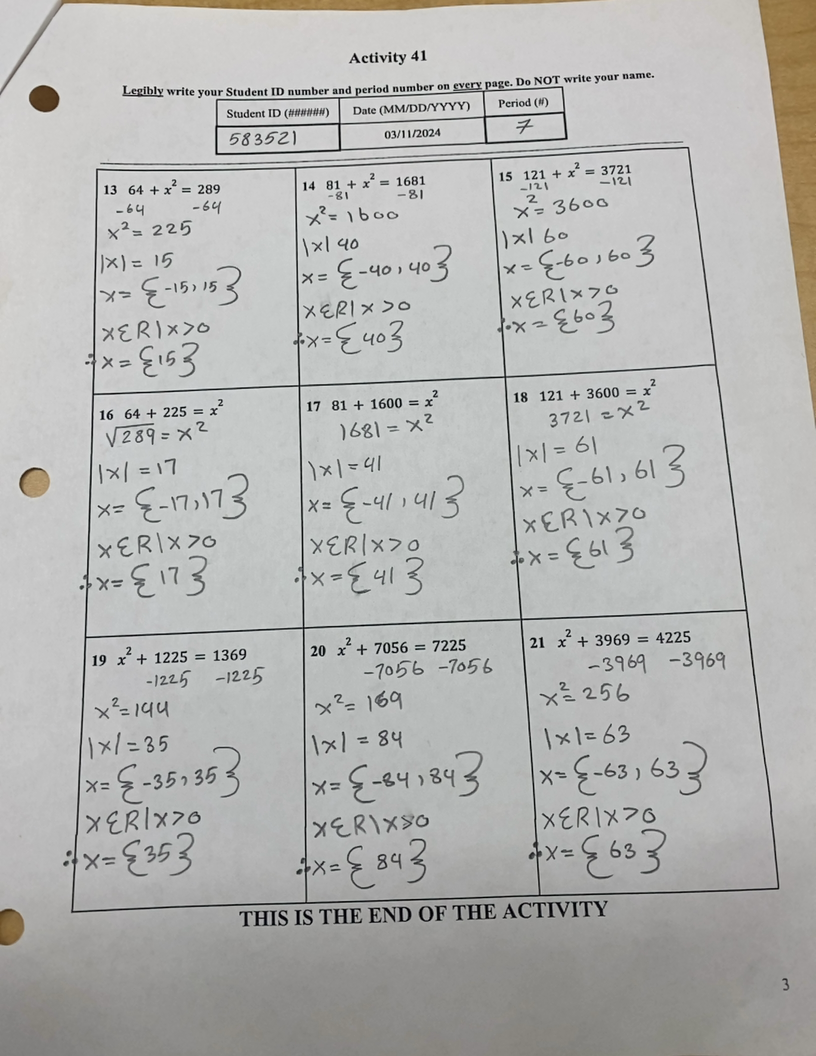 Activity 41
Legibly write your Student ID number and period number on every page. Do NOT write your name.
Student ID (######) Date (MM/DD/YYYY) Period (#)
583521 03/11/2024 7
13 64 + x² = 289
-64 -64
x² = 225
|x| = 15
x = {-15, 15}
xƐR|x>0
∴ x = {15}
14 81 + x² = 1681
-81 -81
x² = 1600
|x| 40
x = {-40, 40}
xƐR|x>0
∴ x = {40}
15 121 + x² = 3721
-121 -121
x² = 3600
|x| 60
x = {-60, 60}
xƐR|x>0
∴ x = {60}
16 64 + 225 = x²
√289 = x²
|x| = 17
x = {-17, 17}
xƐR|x>0
∴ x = {17}
17 81 + 1600 = x²
1681 = x²
|x| = 41
x = {-41, 41}
xƐR|x>0
∴ x = {41}
18 121 + 3600 = x²
3721 = x²
|x| = 61
x = {-61, 61}
xƐR|x>0
∴ x = {61}
19 x² + 1225 = 1369
-1225 -1225
x² = 144
|x| = 35
x = {-35, 35}
xƐR|x>0
∴ x = {35}
20 x² + 7056 = 7225
-7056 -7056
x² = 169
|x| = 84
x = {-84, 84}
xƐR|x>0
∴ x = {84}
21 x² + 3969 = 4225
-3969 -3969
x² = 256
|x| = 63
x = {-63, 63}
xƐR|x>0
∴ x = {63}
THIS IS THE END OF THE ACTIVITY
3